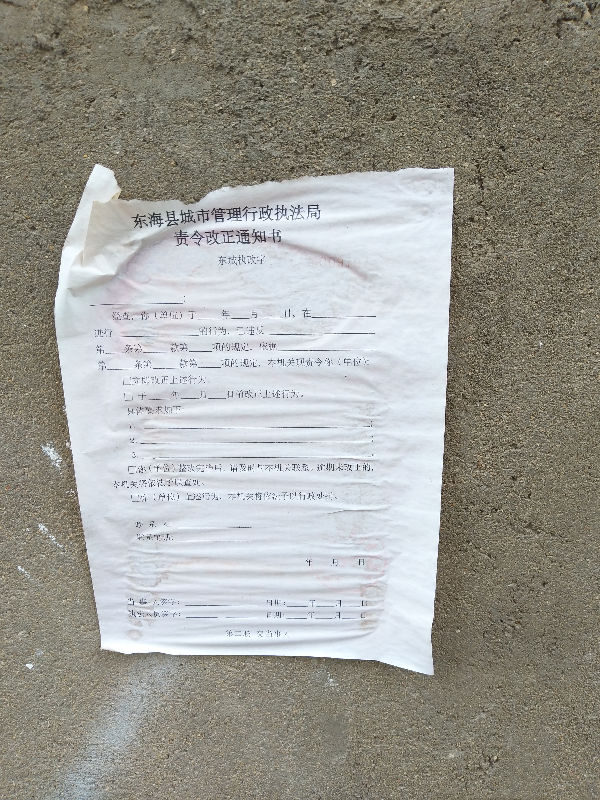 东海县城市管理行政执法局
责令改正通知书
东城执改字
：
经查，你（单位）于____年____月____日，在____________
进行____________的行为，已违反____________
第____条第____款第____项的规定，依据
第____条第____款第____项的规定，本机关现责令你（单位）：
□立即改正上述行为。
□于____年____月____日前改正上述行为。
具体要求如下：
1.____________；
2.____________；
3.____________；
□你（单位）整改完毕后，请及时与本机关联系，逾期未改正的，
本机关将依法予以查处。
□你（单位）上述行为，本机关将依法予以行政处罚。
联 系 人：____________
联系电话：
年 月 日
当事人签字：____________ 日期：____年____月____日
执法人员签字：____________ 日期：____年____月____日
第二联 交当事人